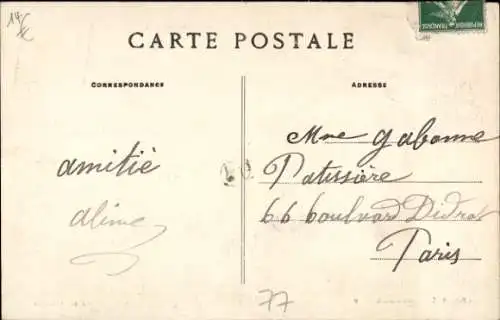 CARTE POSTALE
CORRESPONDANCE
ADRESSE
amitié
aline
Mme Gabonne
Patissière
66 boulvard Didrot
Paris
77